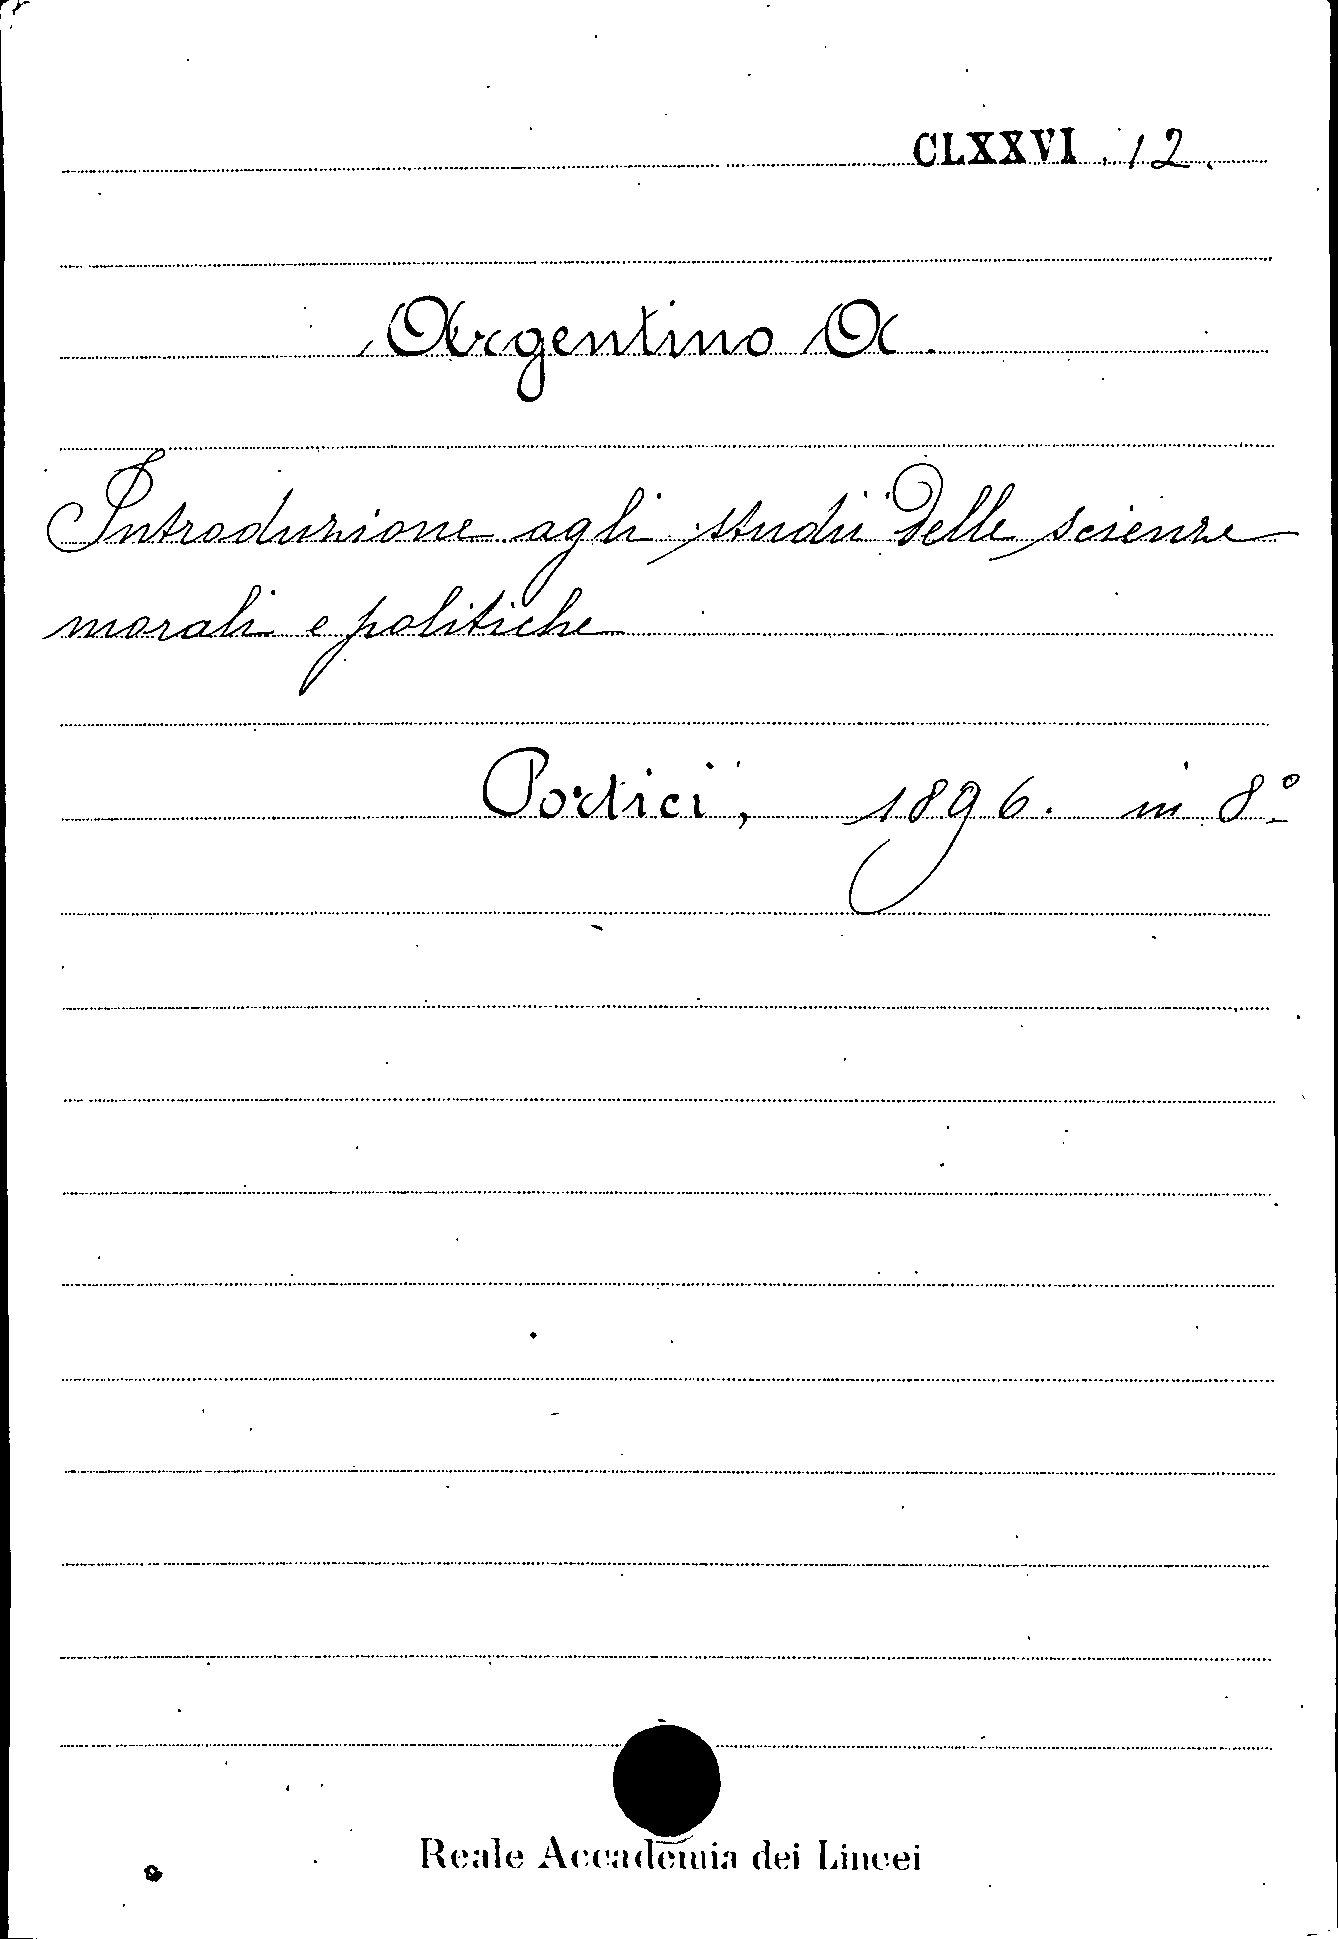 CLXXVI . 12.
Argentino A.
Introduzione agli studii delle scienze
morali e politiche
Portici, 1896. in 8°
Reale Accademia dei Lincei